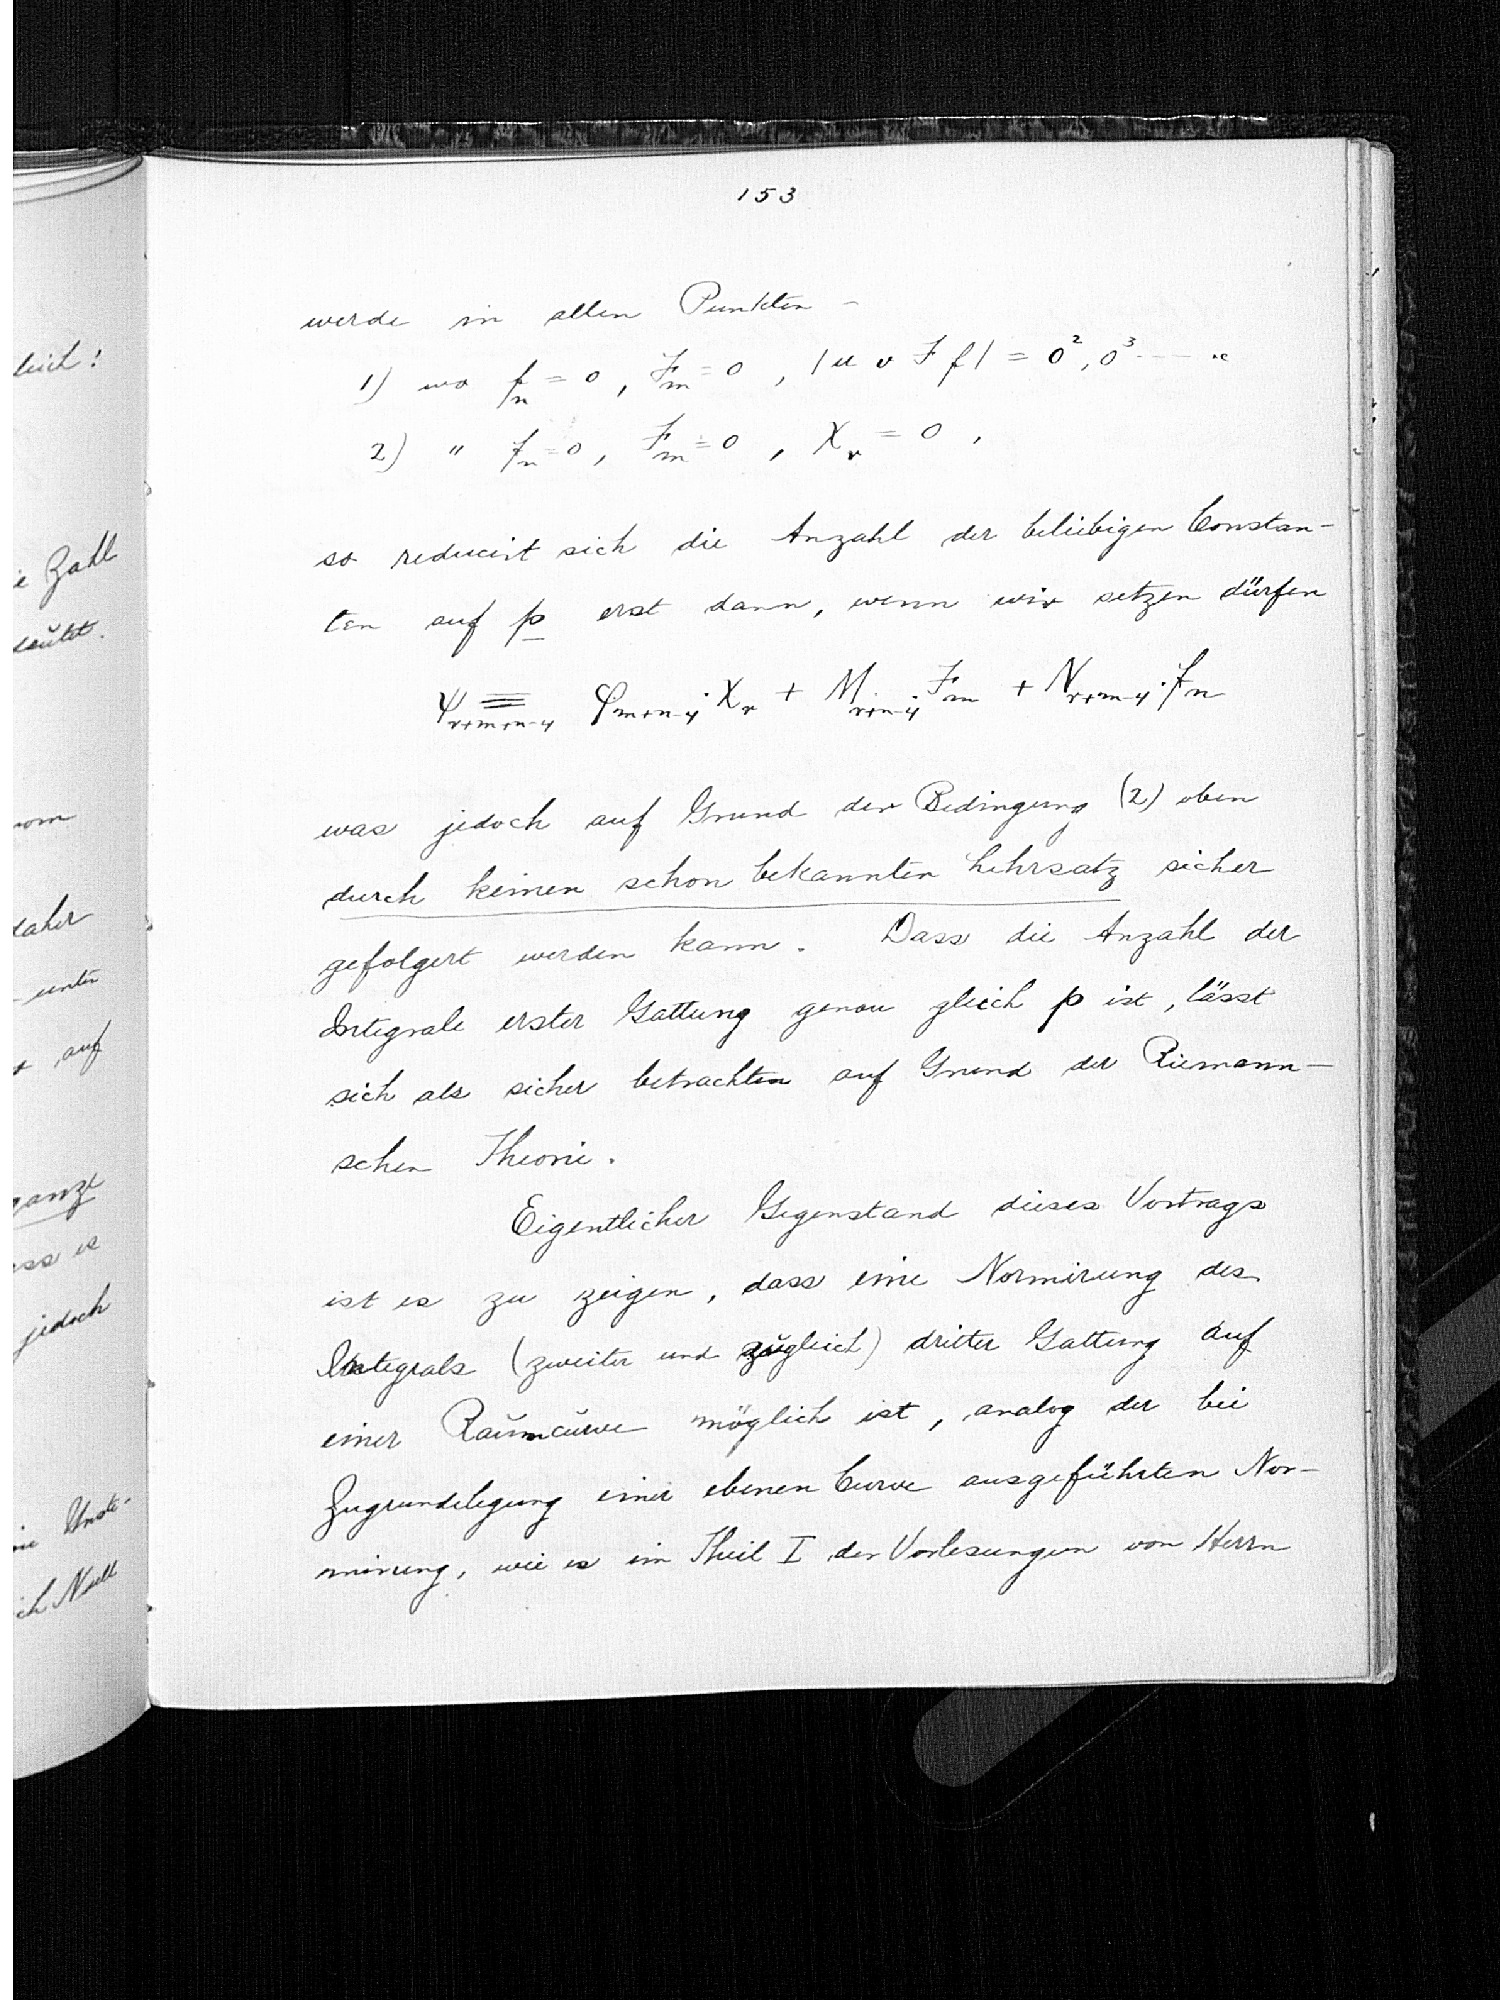 153
werde in allen Punkten –
1) wo f_n = 0, F_m = 0, |u v F f| = 0², 0³ ---- etc
2) " f_n = 0, F_m = 0, χ_r = 0,
so reducirt sich die Anzahl der beliebigen Constan-
ten auf p erst dann, wenn wir setzen dürfen
ψ_{r+m+n-4} ≡ φ_{m+n-4} · χ_r + M_{r+n-4} · F_m + N_{r+m-4} · f_n
was jedoch auf Grund der Bedingung (2) oben
durch keinen schon bekannten Lehrsatz sicher
gefolgert werden kann. Dass die Anzahl der
Integrale erster Gattung genau gleich p ist, lässt
sich als sicher betrachten auf Grund der Riemann-
schen Theorie.
Eigentlicher Gegenstand dieses Vortrags
ist es zu zeigen, dass eine Normirung des
Integrals (zweiter und zugleich) dritter Gattung auf
einer Raumcurve möglich ist, analog der bei
Zugrundelegung einer ebenen Curve ausgeführten Nor-
mirung, wie es im Theil I der Vorlesungen von Herrn
leich!
e Zahl
deutet.
vom
daher
– unter
auf
ganze
ss es
jedoch
ich Null